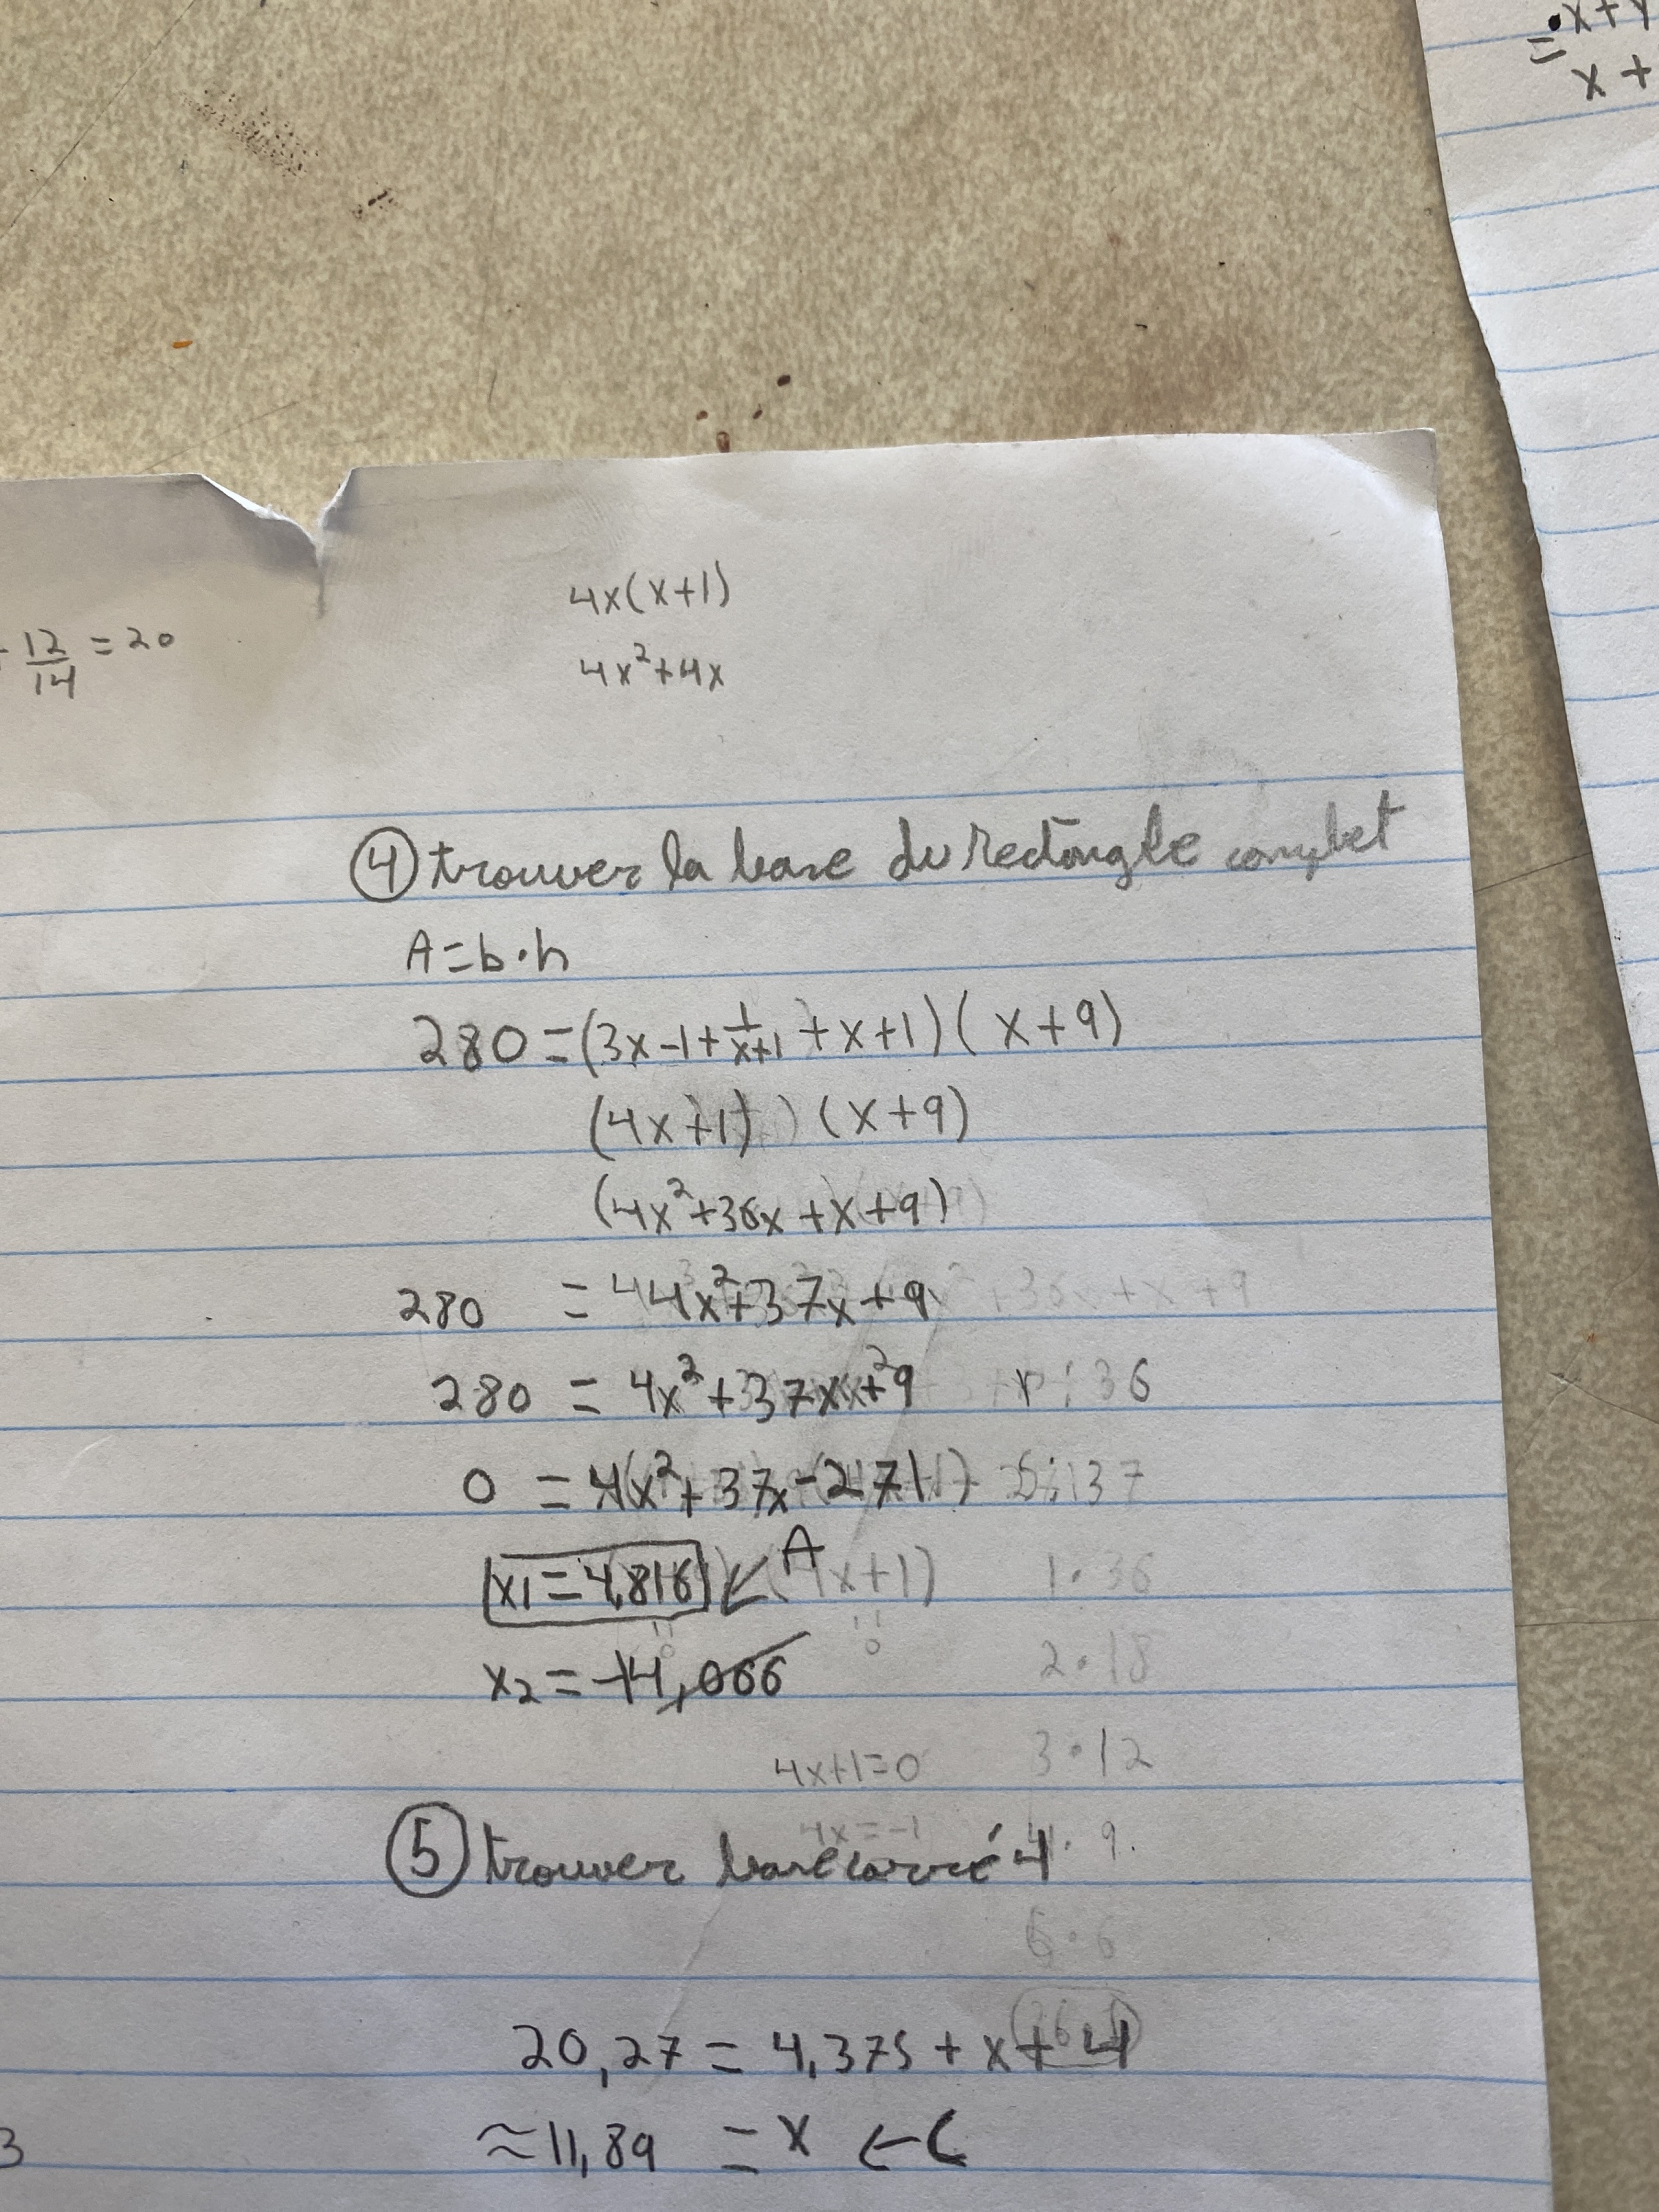 = x+
x+
4x(x+1)
12/14 = 20
4x²+4x
④ trouver la base du rectangle complet
A=b·h
280=(3x-1+1/x+1+x+1)(x+9)
(4x+1)(x+9)
(4x²+36x+x+9)
280 = 4x²+37x+9
280 = 4x²+37x+9 P:36
0 = 4x²+37x-271 S:37
x1=4,816 ← A (4x+1) 1·36
x2=-14,066 2·18
4x+1=0 3·12
4x=-1
⑤ trouver base carré 4 4·9
6·6
20,27 = 4,375 + x + 4
≈11,89 = x ← C
3